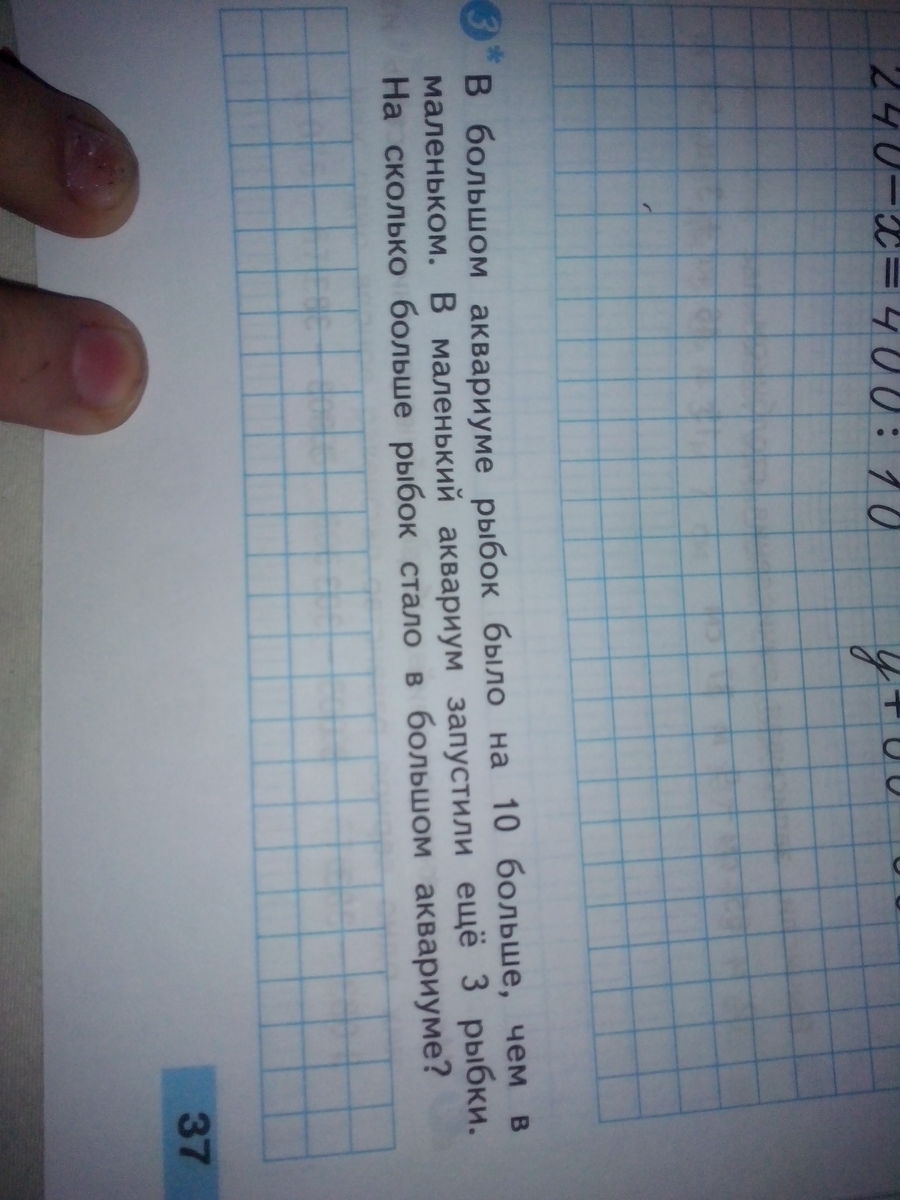 240-x=400:10 y+
3* В большом аквариуме рыбок было на 10 больше, чем в
маленьком. В маленький аквариум запустили ещё 3 рыбки.
На сколько больше рыбок стало в большом аквариуме?
37